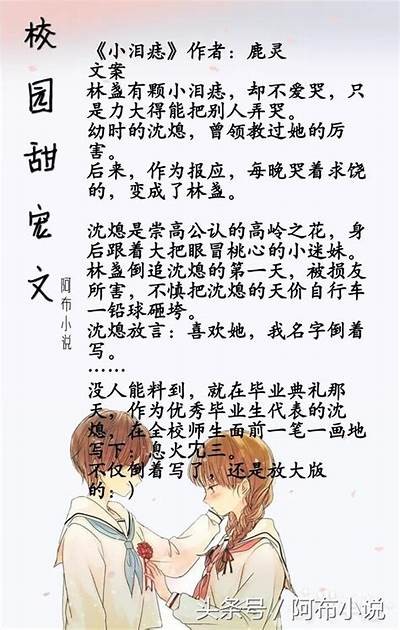 校园甜宠文
阿布小说
《小泪痣》作者：鹿灵
文案
林盏有颗小泪痣，却不爱哭，只
是力大得能把别人弄哭。
幼时的沈熄，曾领教过她的厉
害。
后来，作为报应，每晚哭着求饶
的，变成了林盏。
沈熄是崇高公认的高岭之花，身
后跟着大把眼冒桃心的小迷妹。
林盏倒追沈熄的第一天，被损友
所害，不慎把沈熄的天价自行车
一铅球砸垮。
沈熄放言：喜欢她，我名字倒着
写。
……
没人能料到，就在毕业典礼那
天，作为优秀毕业生代表的沈
熄，在全校师生面前一笔一画地
写下：息火冘三。
不仅倒着写了，还是放大版
的：）
头条号／阿布小说